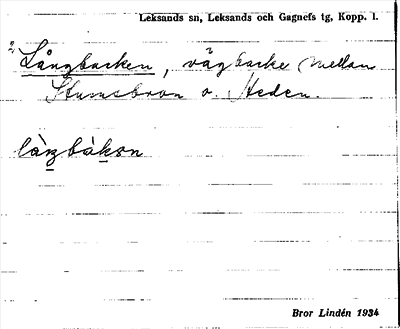 Leksands sn, Leksands och Gagnefs tg, Kopp. l.
Långbacken, vägbacke mellan
o. Heden.
làŋbàkon
Bror Lindén 1934